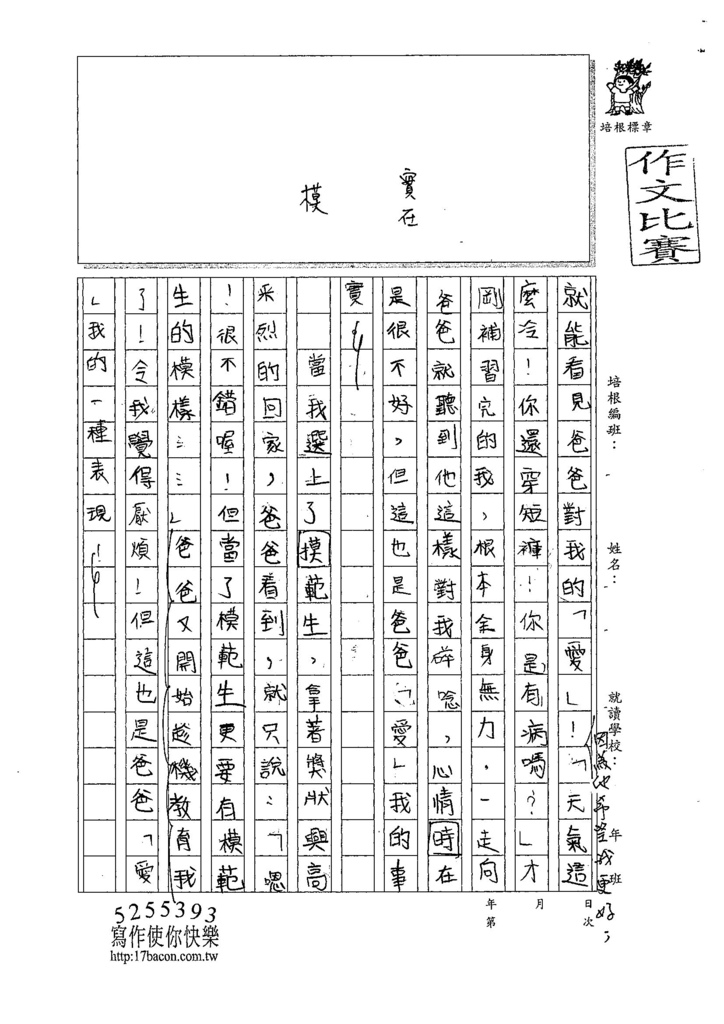 培根標章
作文比賽
實在
模
培根編班：
姓名：
就讀學校：
年 班
因為他希望我更好，
就能看見爸爸對我的「愛」！「天氣這
麼冷！你還穿短褲！你是有病嗎？」才
剛補習完的我，根本全身無力，一走向
爸爸就聽到他這樣對我碎唸，心情時在
是很不好，但這也是爸爸「愛」我的事
實！
當我選上了摸範生，拿著獎狀興高
采烈的回家，爸爸看到，就只說：「嗯
！很不錯喔！但當了模範生更要有模範
生的模樣……」爸爸又開始趁機教育我
了！令我覺得厭煩！但這也是爸爸「愛
」我的一種表現！
年 月 日
第 次
5255393
寫作使你快樂
http:17bacon.com.tw